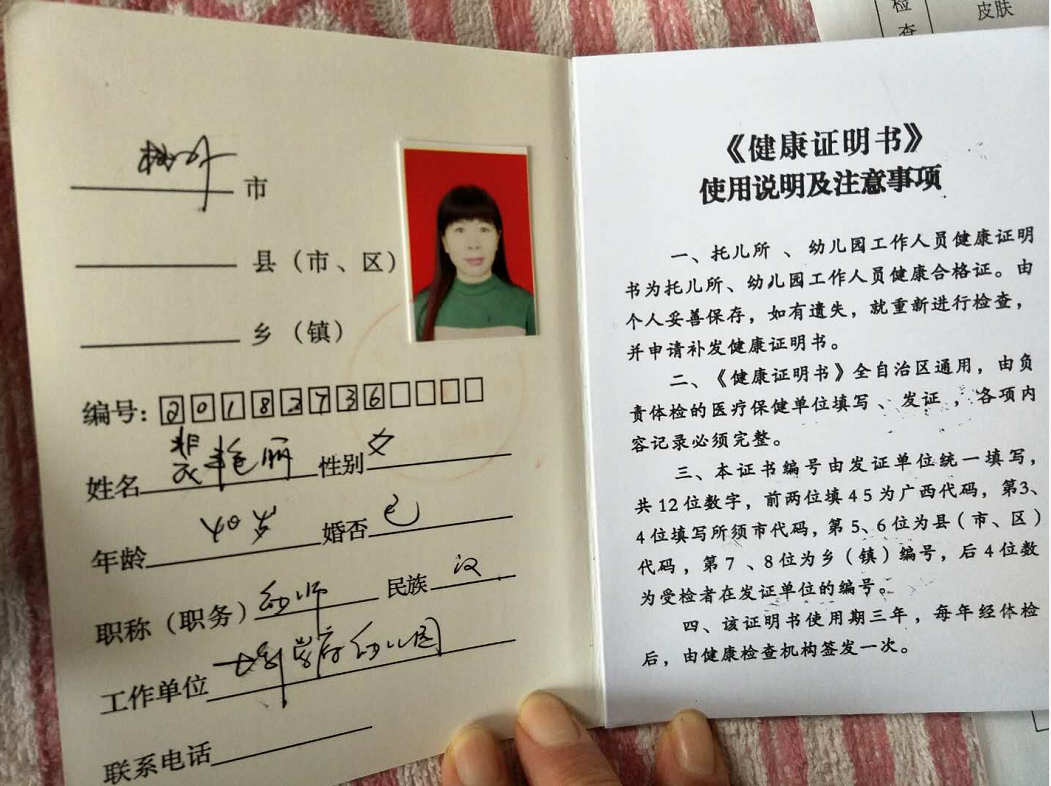 检
查
皮肤
柳州市
县（市、区）
乡（镇）
编号：20182736
姓名 裴艳丽 性别 女
年龄 40岁 婚否 已
职称（职务）幼师 民族 汉
工作单位 学府幼儿园
联系电话
《健康证明书》
使用说明及注意事项
一、托儿所、幼儿园工作人员健康证明
书为托儿所、幼儿园工作人员健康合格证。由
个人妥善保存，如有遗失，就重新进行检查，
并申请补发健康证明书。
二、《健康证明书》全自治区通用，由负
责体检的医疗保健单位填写、发证，各项内
容记录必须完整。
三、本证书编号由发证单位统一填写，
共12位数字，前两位填45为广西代码，第3、
4位填写所须市代码，第5、6位为县（市、区）
代码，第7、8位为乡（镇）编号，后4位数
为受检者在发证单位的编号。
四、该证明书使用期三年，每年经体检
后，由健康检查机构签发一次。